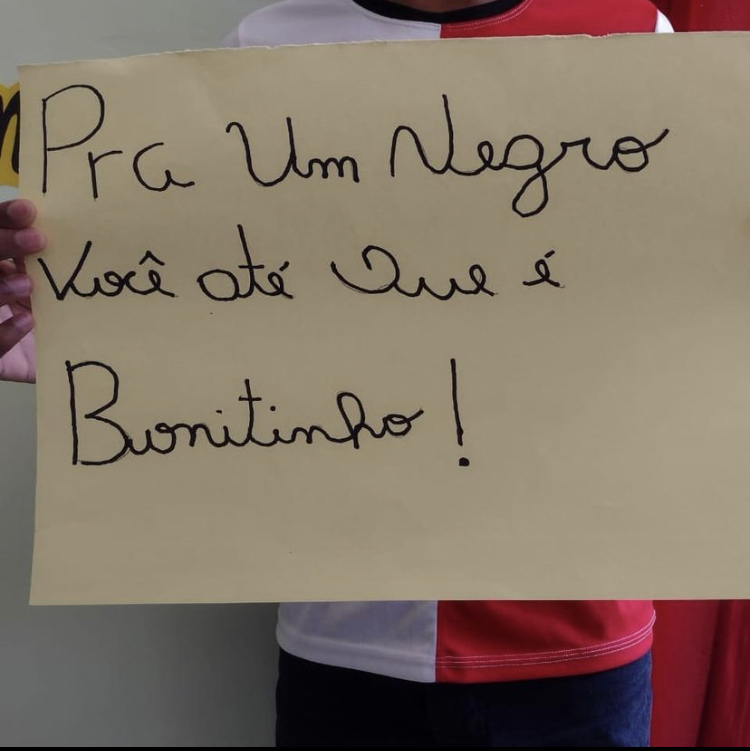 Pra Um Negro
Você até Que é
Bonitinho!